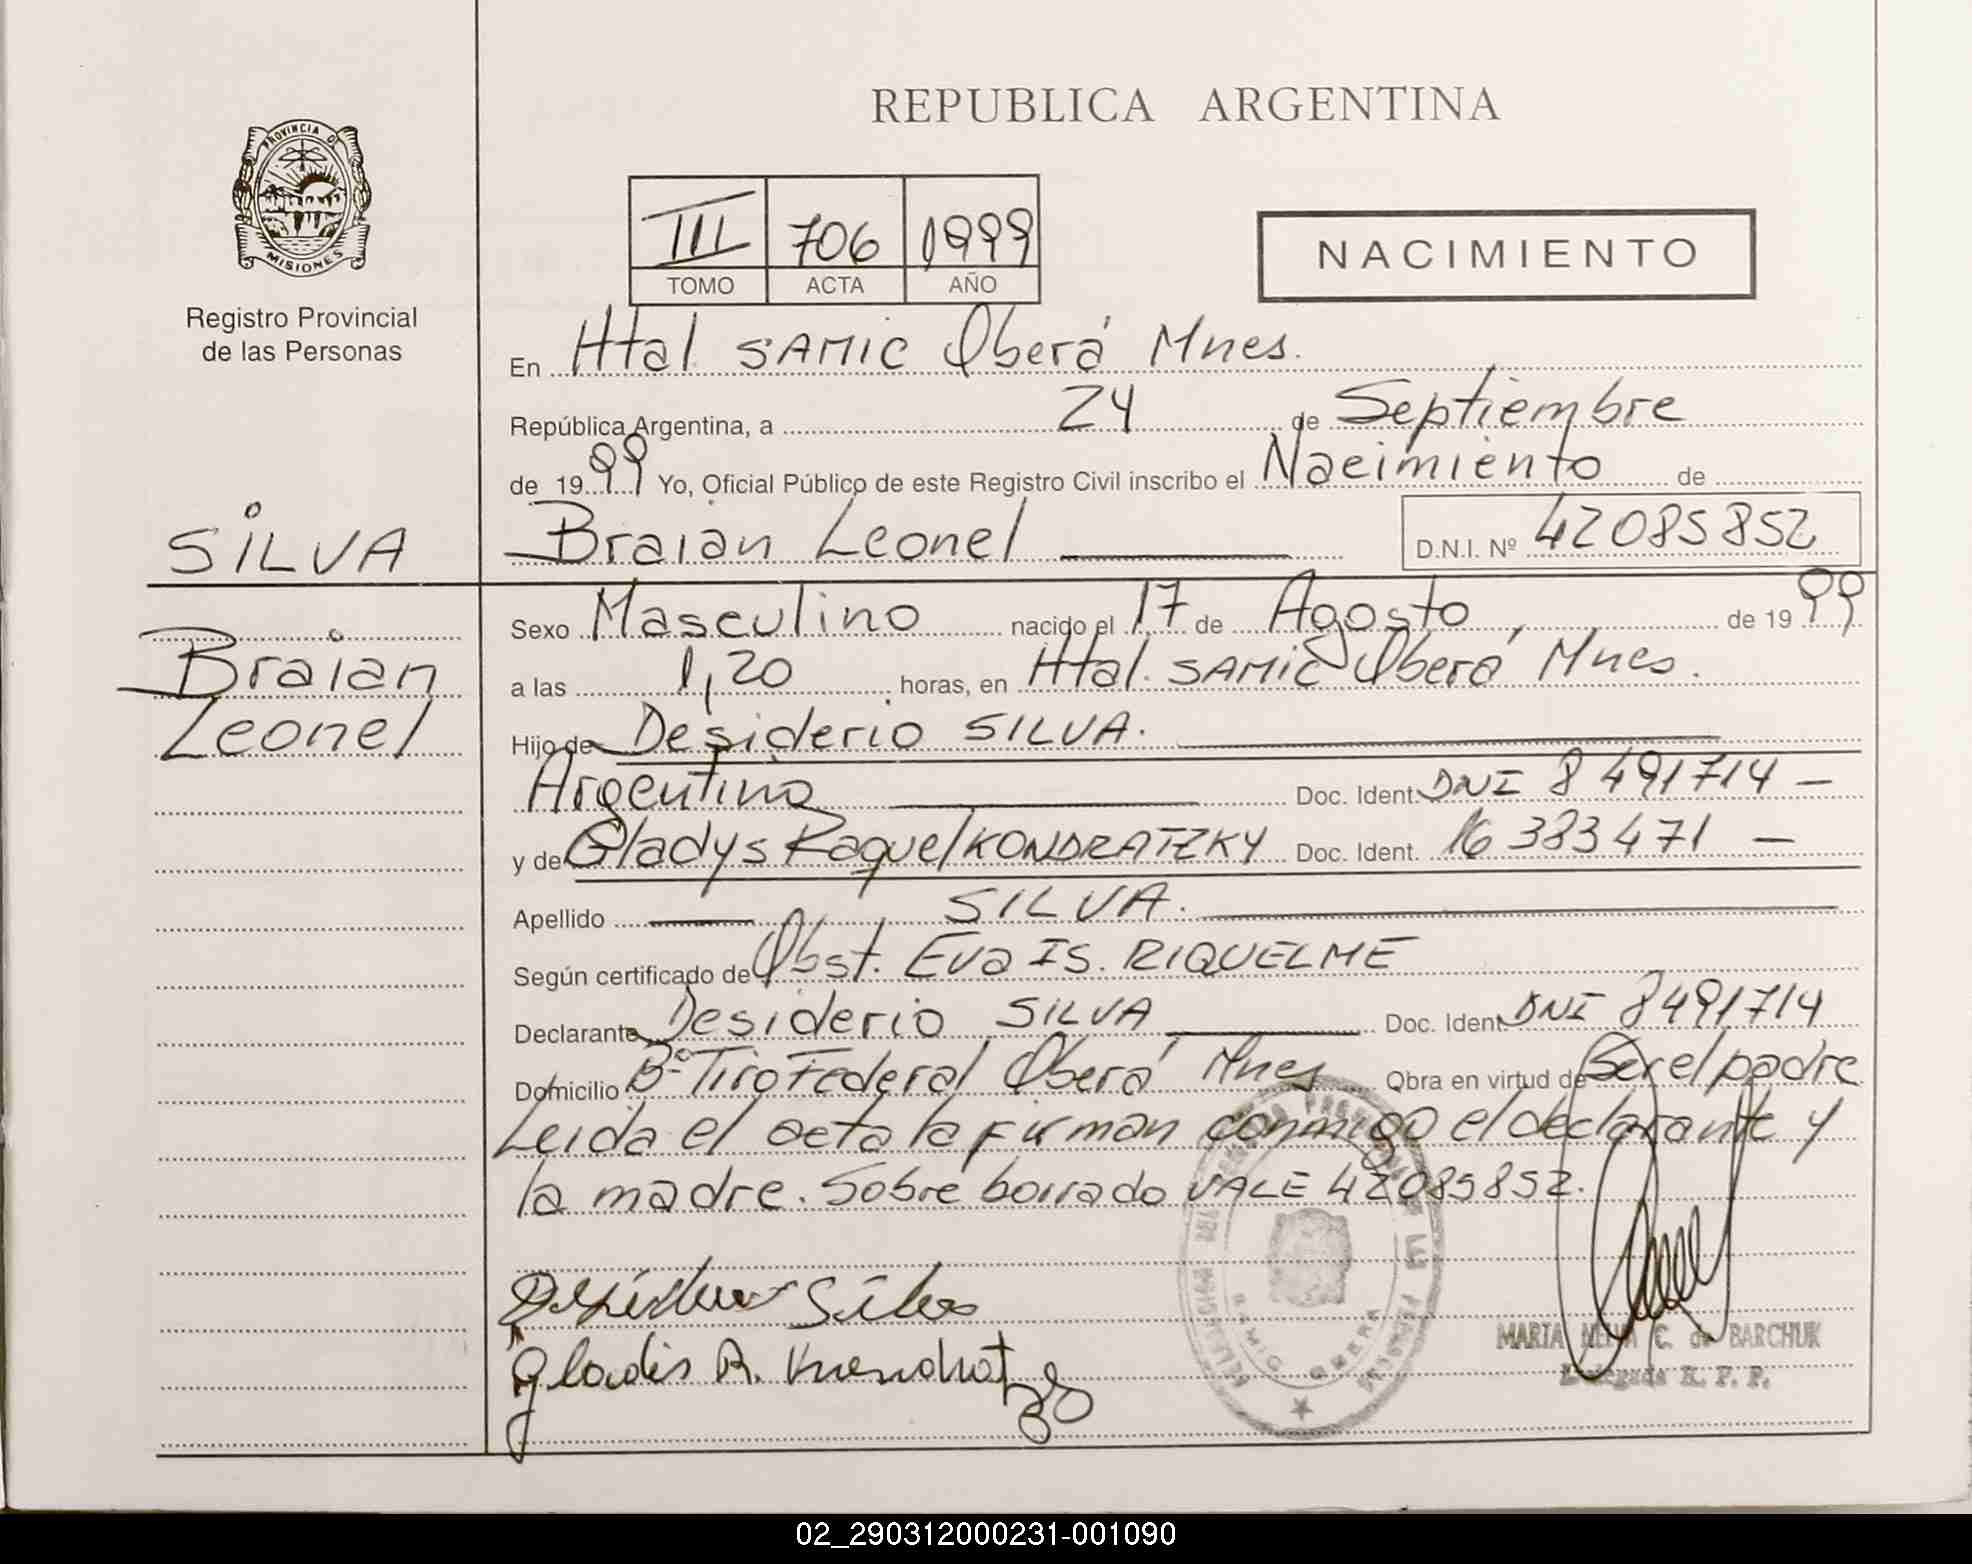 REPUBLICA ARGENTINA
PROVINCIA DE
MISIONES
Registro Provincial
de las Personas
III 706 1999
TOMO ACTA AÑO
NACIMIENTO
En Htal SAMIC Oberá Mnes.
República Argentina, a 24 de Septiembre
de 1999 Yo, Oficial Público de este Registro Civil inscribo el Nacimiento de
SILVA
Braian Leonel D.N.I. Nº 42085852
Braian
Leonel
Sexo Masculino nacido el 17 de Agosto, de 1999
a las 1,20 horas, en Htal. SAMIC Oberá Mnes.
Hijo de Desiderio SILVA.
Argentino Doc. Ident. DNI 8 491714 —
y de Gladys Raquel KONDRATZKY Doc. Ident. 16 383471 —
Apellido SILVA.
Según certificado de Obst. Eva Is. RIQUELME
Declarante Desiderio SILVA Doc. Ident. DNI 8491714
Domicilio Bº Tiro Federal Oberá Mnes Obra en virtud de Ser el padre
Leida el acta la firman conmigo el declarante y
la madre. Sobre borrado VALE 42085852.
Desiderio Silva
Gladis R.
MARIA C. de BARCHUK
Delegada R. P. P.
02_290312000231-001090